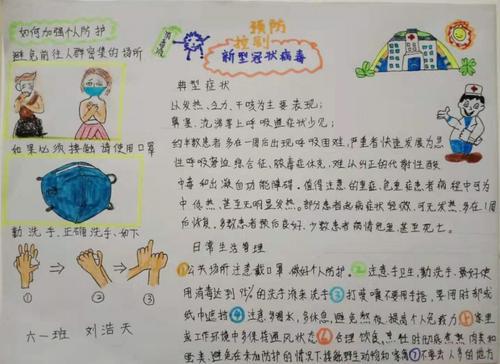 如何加强个人防护
避免前往人群密集的场所
如果必须接触请使用口罩
勤洗手、正确洗手、如下
① ② ③
六一班 刘浩天
预防
控制
新型冠状病毒
典型症状
以发热、乏力、干咳为主要表现；
鼻塞、流涕等上呼吸道症状少见；
约半数患者多在一周后出现呼吸困难，严重者快速发展为急
性呼吸窘迫综合征、脓毒症休克、难以纠正的代谢性酸
中毒和出凝血功能障碍。值得注意的是重症、危重症患者病程中可为
中低热，甚至无明显发热。部分患者起病症状轻微，可无发热，多在1周
后恢复，多数患者预后良好，少数患者病情危重，甚至死亡。
日常生活管理
①公共场所注意戴口罩，做好个人防护。②注意手卫生，勤洗手，最好使
用消毒达到75%的洗手液来洗手③打喷嚏不要用手捂，要用肘部或
纸巾遮挡④注意多喝水，多休息，避免熬夜，提高个人免疫力⑤家里
或工作环境中多保持通风状态⑥合理饮食，烹饪时彻底煮熟肉类和
蛋类，避免在未加防护的情况下接触野生动物和家禽⑦不要去人多的地方